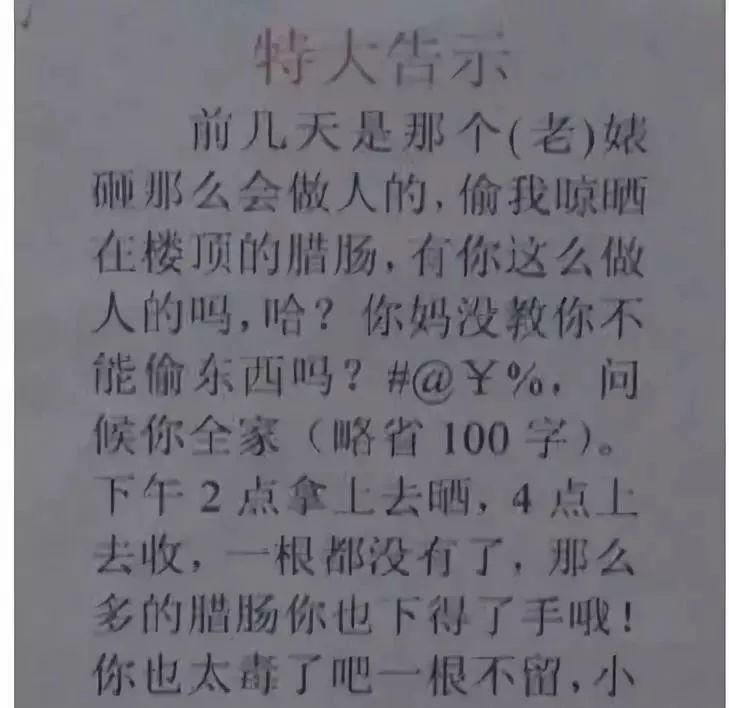 特大告示
前几天是那个(老)婊
砸那么会做人的,偷我晾晒
在楼顶的腊肠,有你这么做
人的吗,哈? 你妈没教你不
能偷东西吗? #@￥%, 问
候你全家 (略省 100 字)。
下午 2 点拿上去晒, 4 点上
去收, 一根都没有了, 那么
多的腊肠你也下得了手哦!
你也太毒了吧一根不留, 小